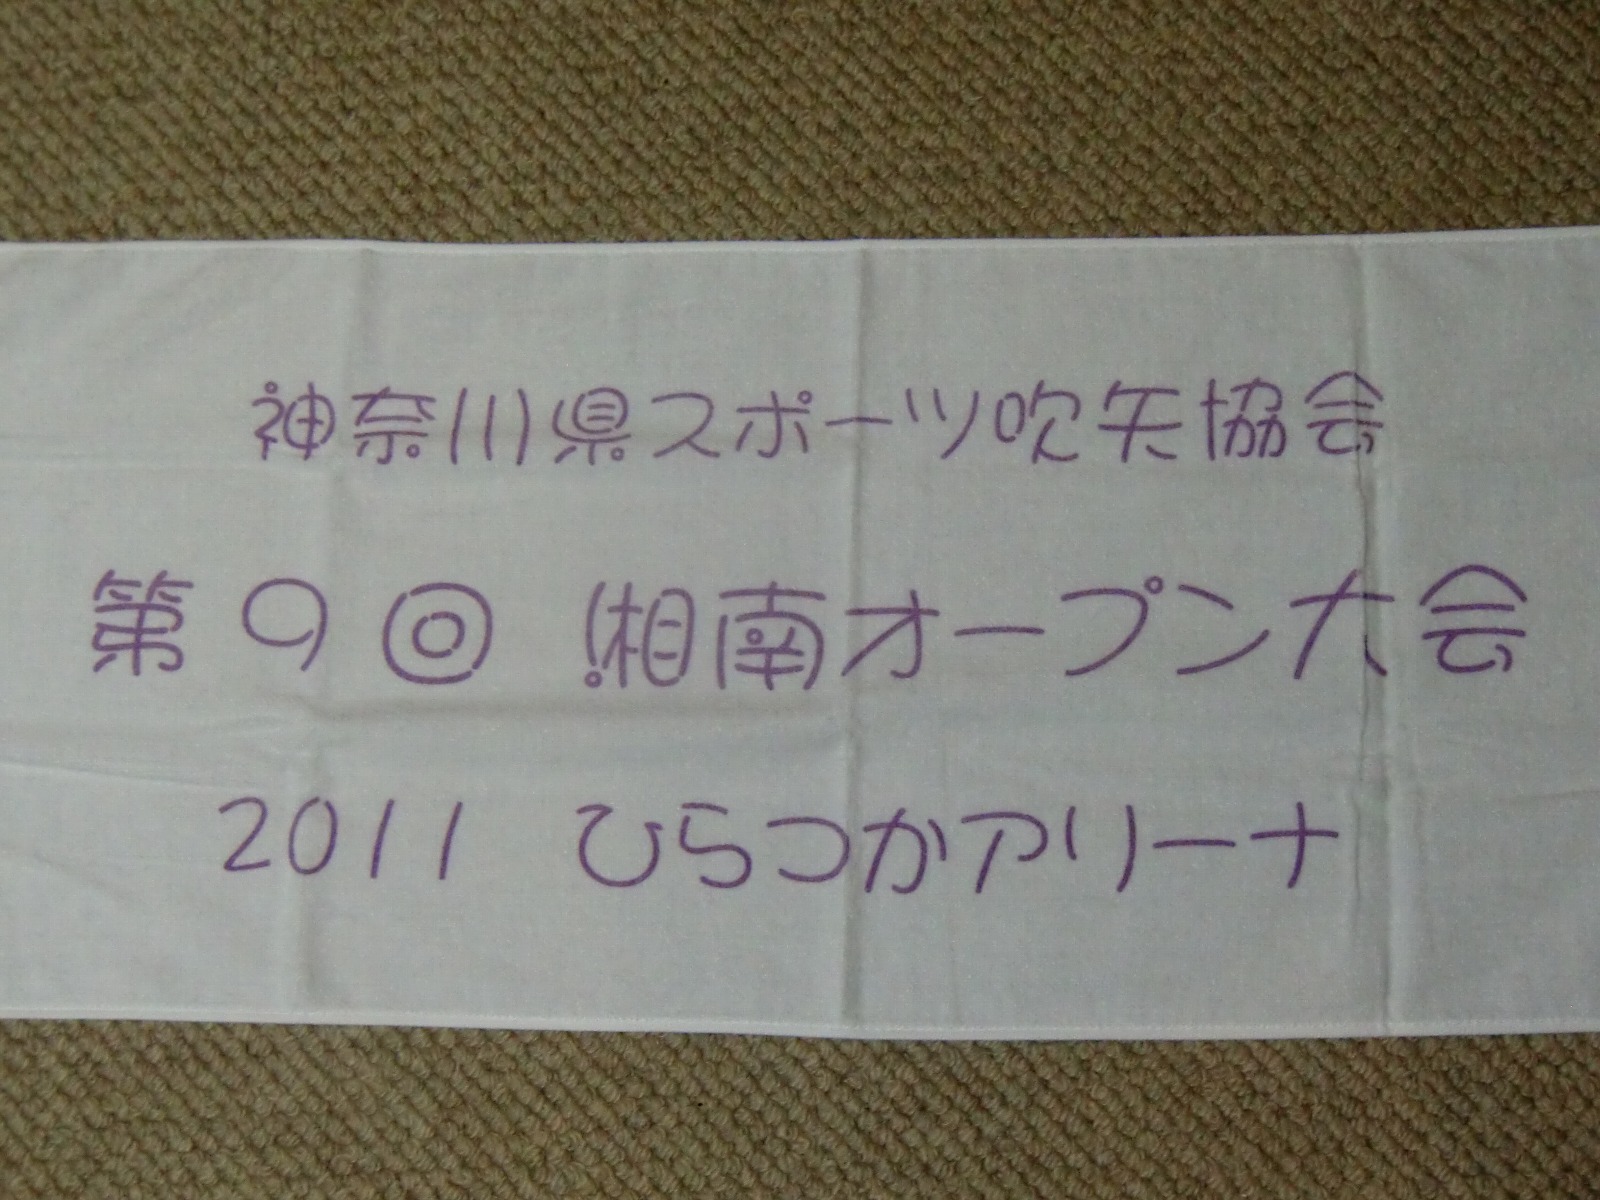 神奈川県スポーツ吹矢協会
第9回 湘南オープン大会
2011 ひらつかアリーナ